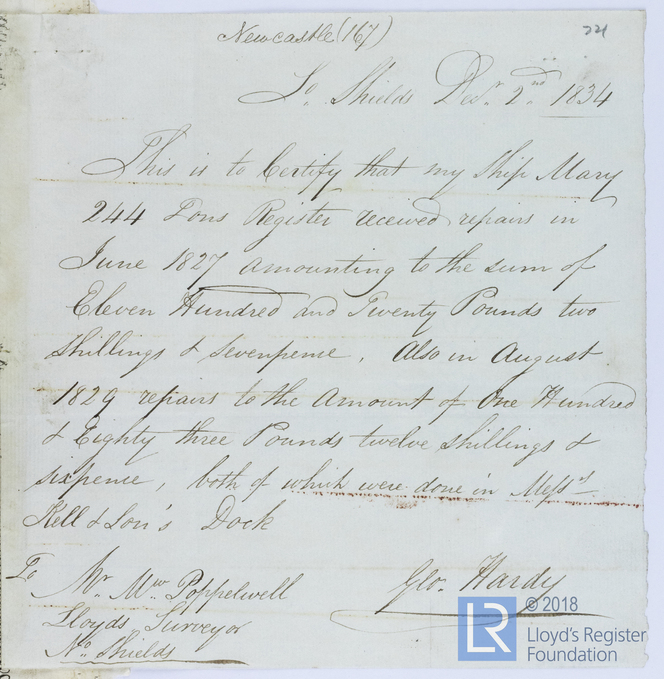 Newcastle (167)
721
So. Shields Decr. 2nd 1834
This is to Certify that my Ship Mary
244 Tons Register received repairs in
June 1827 amounting to the sum of
Eleven Hundred and Twenty Pounds two
Shillings & Sevenpense, Also in August
1829 repairs to the Amount of One Hundred
& Eighty three Pounds twelve Shillings &
sixpense, both of which were done in Messrs
Kell & Son's Dock
Geo. Hardy
To
Mr. Mw. Poppelwell
Lloyds Surveyor
No. Shields
LR © 2018
Lloyd's Register
Foundation